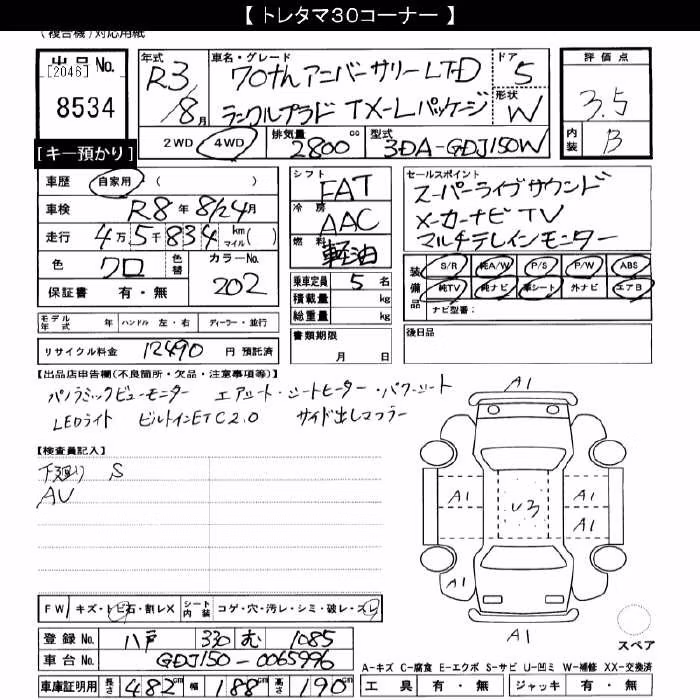 【 トレタマ30コーナー 】
(複合機)対応用紙
出品 No.
[2046]
8534
【キー預かり】
年式
R3
8月
車名・グレード
70thアニバーサリーLTD
ランクルプラド TX-Lパッケージ
ドア
5
形状
W
評価点
3.5
内装
B
2WD 4WD
排気量 2800 cc
型式 3DA-GDJ150W
車歴 自家用・( )
車検 R8年 8/24月
走行 4万5千834 km マイル( )
色 クロ 色替 カラーNo. 202
保証書 有・無
シフト FAT
冷房 AAC
燃料 軽油
乗車定員 5 名
積載量 kg
総重量 kg
書類期限
月 日
セールスポイント
スーパーライブサウンド
メーカーナビ TV
マルチテレインモニター
装備品
S/R 純A/W P/S P/W ABS
純TV 純ナビ 革シート 外ナビ エアB
ナビ型番:
後日品
モデル年式 年 ハンドル 左・右 ディーラー・並行
リサイクル料金 12490 円 預託済
【出品店申告欄(不良箇所・欠品・注意事項等)】
パノラミックビューモニター エアシート・シートヒーター・パワーシート
LEDライト ビルトインETC2.0 サイド出しマフラー
【検査員記入】
下廻り S
AU
A1
A1 A1
U3
A1
A1
A1
スペア
FW キズ・トビ石・割レX シート内装 コゲ・穴・汚レ・シミ・破レ・スレ
登録 No. 八戸 330 む 1085
車台 No. GDJ150-0065996
車庫証明用 長さ 482cm 幅 188cm 高さ 190cm
A-キズ C-腐食 E-エクボ S-サビ U-凹ミ W-補修 XX-交換済
工具 有・無 ジャッキ 有・無